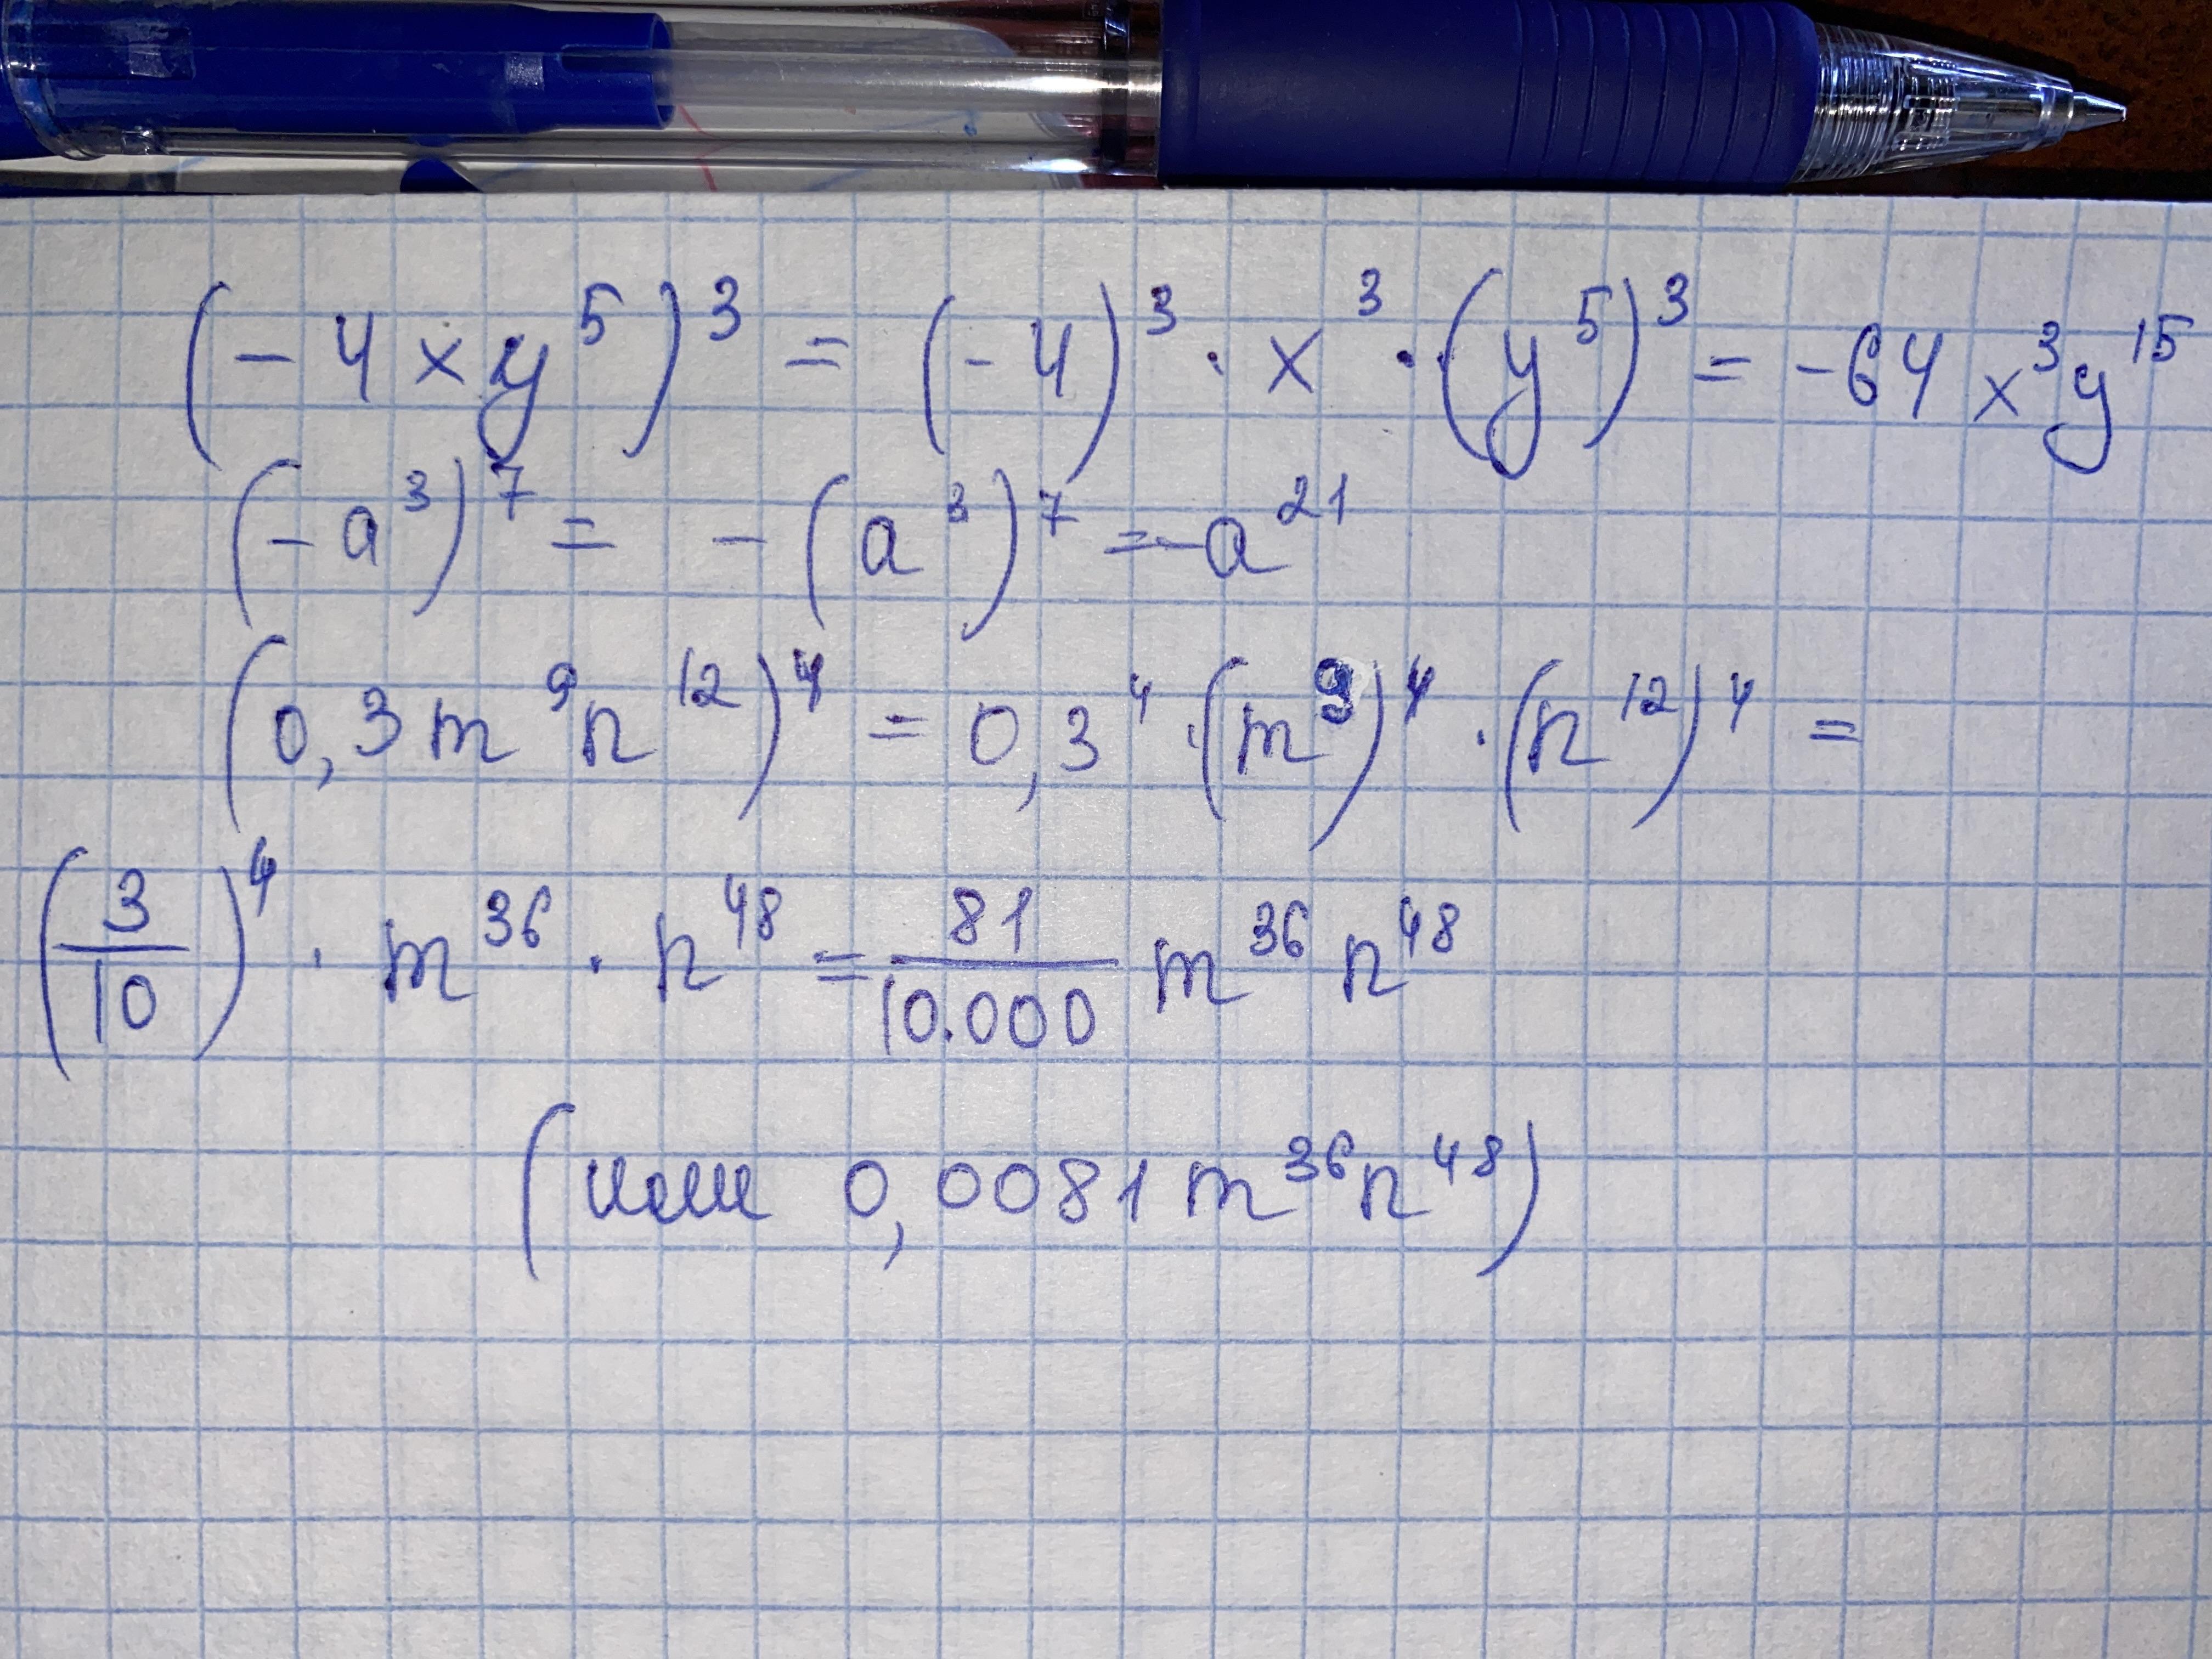 (-4xy⁵)³ = (-4)³ · x³ · (y⁵)³ = -64x³y¹⁵
(-a³)⁷ = -(a³)⁷ = -a²¹
(0,3m⁹n¹²)⁴ = 0,3⁴ · (m⁹)⁴ · (n¹²)⁴ =
(3/10)⁴ · m³⁶ · n⁴⁸ = 81/10.000 m³⁶ n⁴⁸
(или 0,0081m³⁶n⁴⁸)